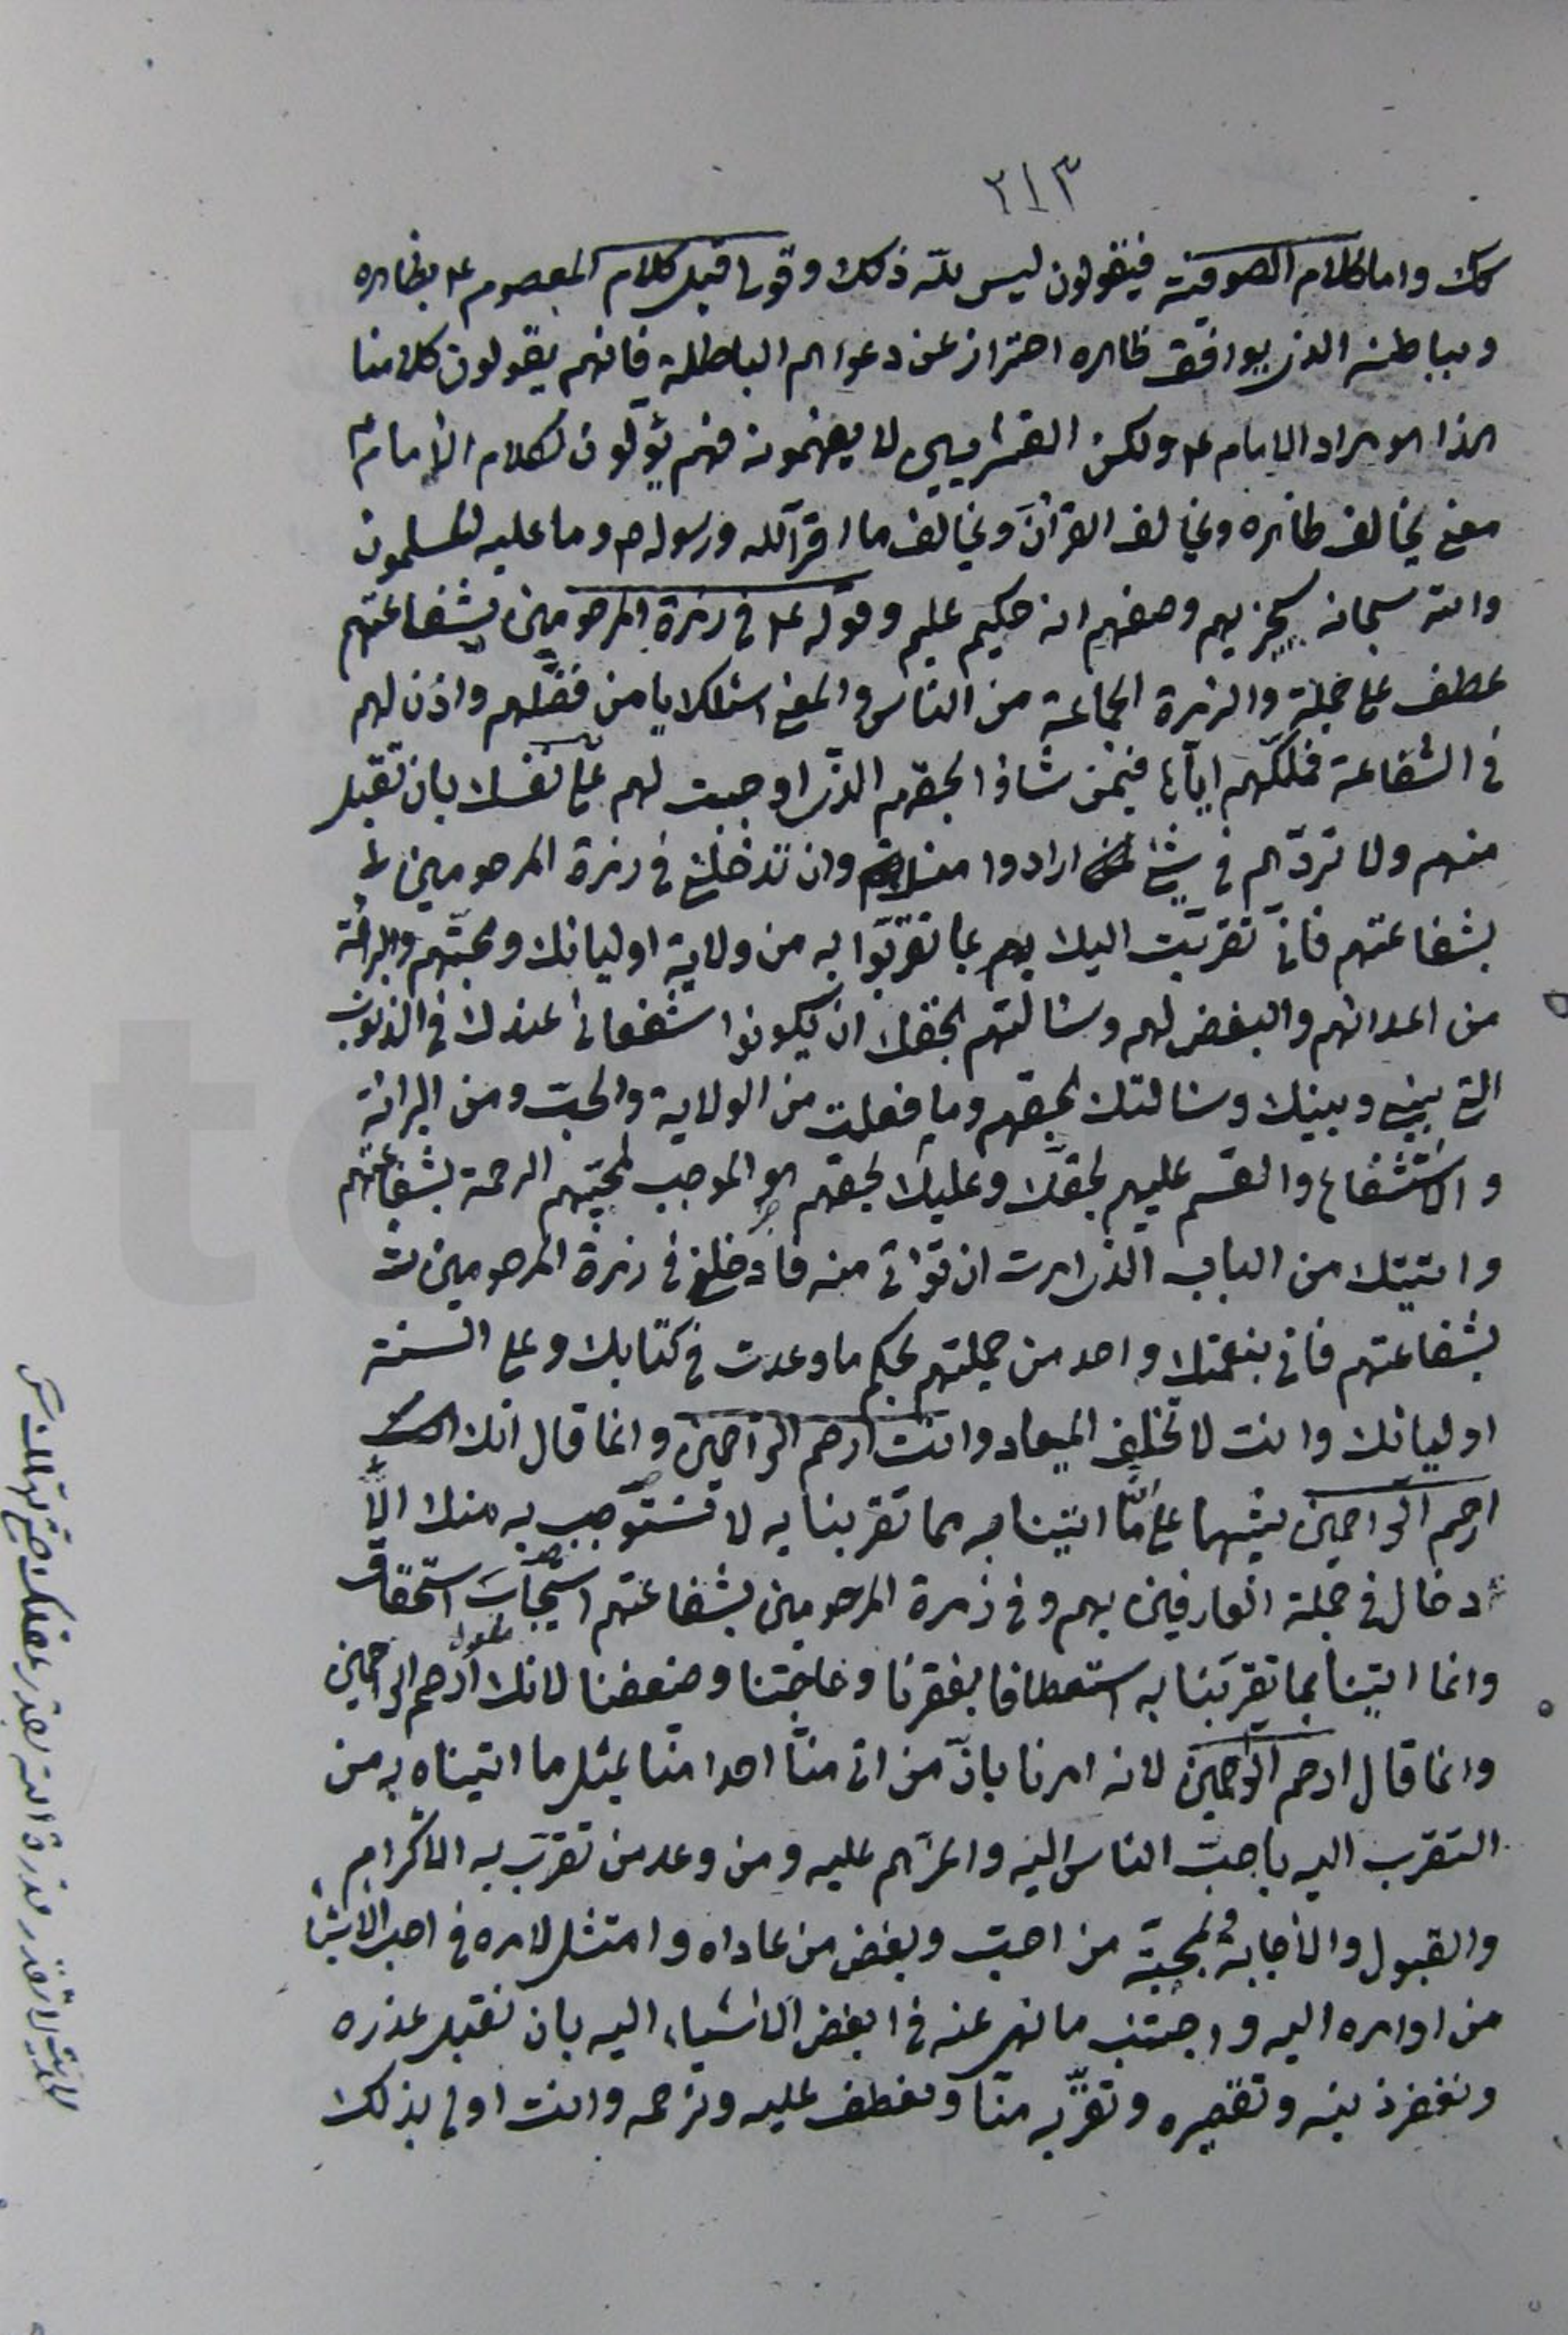 ٢١٣
كك واما كلام الصوفية فيقولون ليس لله ذلك وقولي قبل كلام المعصوم ع بظاهره
وبباطنه الذي يوافق ظاهره احتراز عن دعواهم الباطلة فانهم يقولون كلامنا
هذا هو مراد الامام ع ولكن القشريين لا يفهمونه فهم يؤلون لكلام الامام ع
معنى يخالف ظاهره ويخالف القرآن ويخالف ما اقر الله ورسوله ص وما عليه المسلمون
والله سبحانه سيجزيهم وصفهم انه حكيم عليم وقوله ع في زمرة المرحومين بشفاعتهم
عطف على جملة والزمرة الجماعة من الناس والمعنى اسئلك يا من فضّلهم واذن لهم
في الشفاعة فملّكهم اياها فيمن شاؤا بحقهم الذي اوجبت لهم على نفسك بان تقبل
منهم ولا تردّهم في شيئ ارادوا وان تدخلني في زمرة المرحومين
بشفاعتهم فاني تقربت اليك بهم بما تقربوا به من ولاية اوليائك ومحبتهم والبرائة
من اعدائهم والبغض لهم وسالتهم بحقك ان يكونوا شفعائي عندك في الذنوب
التي بيني وبينك وسالتك بحقهم وما فعلت من الولاية والحب ومن البرائة
والاستشفاع والقسم عليهم بحقك وعليك بحقهم هو الموجب لمحبيهم الرحمة بشفاعتهم
واتيتك من الباب الذي امرت ان تؤاتى منه فادخلني في زمرة المرحومين
بشفاعتهم فاني بنعمتك واحد من جملتهم بحكم ما وعدت في كتابك وعلى السنة
اوليائك وانت لا تخلف الميعاد وانت ارحم الراحمين وانما قال انك
ارحم الراحمين تنبيها على انّا اتينا به مما تقربنا به لا نستوجب به منك الا
دخال في جملة العارفين بهم وفي زمرة المرحومين بشفاعتهم استيجاب استحقاق
وانما اتينا بما تقربنا به استعطافا بفقرنا وفاقتنا وضعفنا لانك ارحم الراحمين
وانما قال ارحم الراحمين لانه امرنا بان من اتى منا احدا منا بمثل ما اتيناه به من
التقرب اليه باحب الناس اليه واعزهم عليه ومن وعد من تقرب به الاكرام
والقبول والاجابة لمحبة من احب وبغض من عاداه وامتثل لامره في احب الاشياء
من اوامره اليه واجتنب ما نهى عنه في ابغض الاشياء اليه بان نقبل عذره
ونغفر ذنبه وتقصيره ونقرّبه منّا ونعطف عليه ونرحمه وانت اولى بذلك